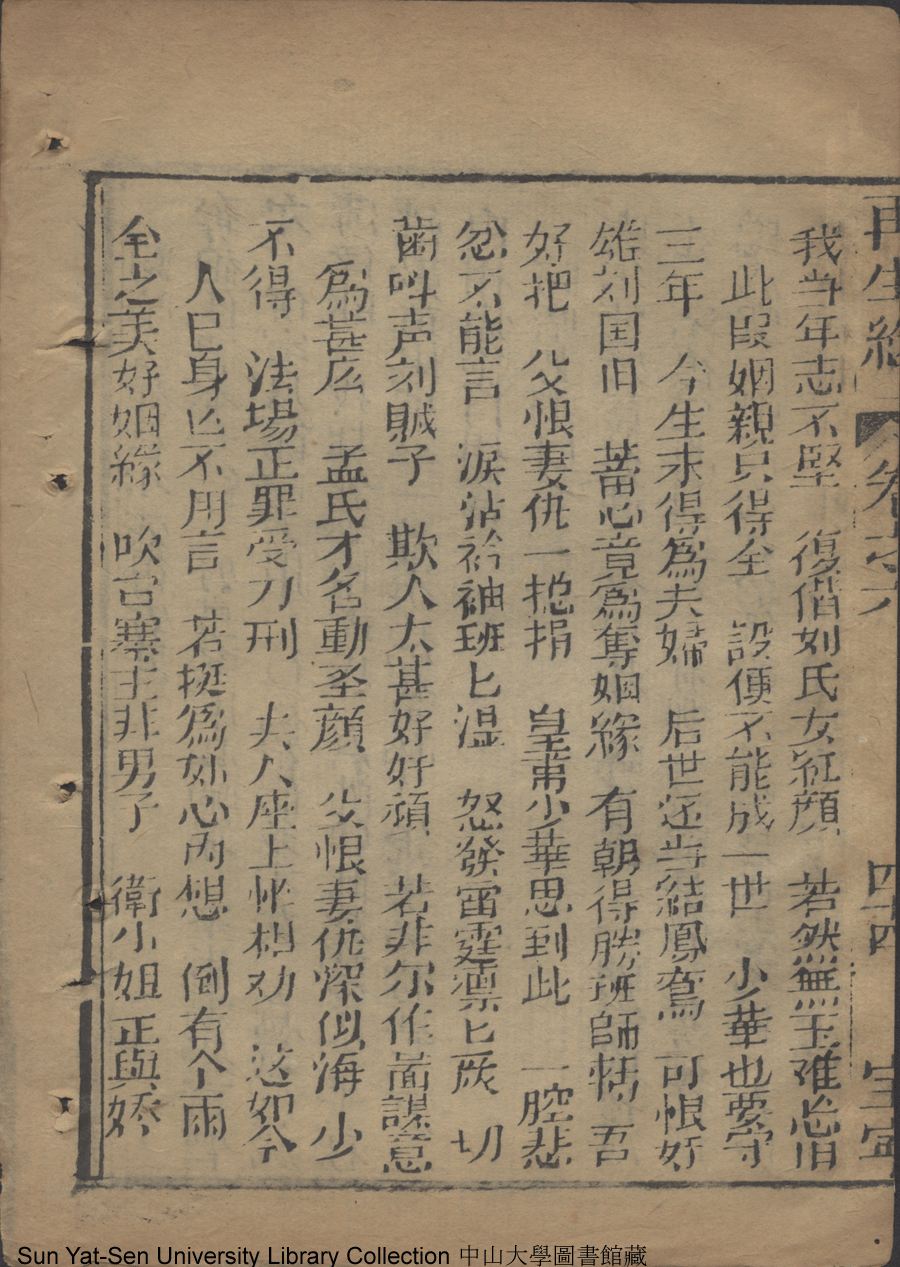 再生緣 卷之六 四十四
我当年志不堅 復偕刘氏女紅顔 若然無玉难忘旧
此叚姻親只得全 設使不能成一世 少華也要守
三年 今生未得為夫婦 后世还当結鳳鴛 可恨奸
雄刘国旧 蓄心竟為奪姻緣 有朝得勝班師轉 吾
好把 父恨妻仇一捴捐 皇甫少華思到此 一腔悲
忿不能言 淚沾袷袖班匕湿 怒發雷霆凛匕威 切
齒叫声刘賊子 欺人太甚好奸頑 若非尔作 謀意
為甚庅 孟氏才名動圣顔 父恨妻仇深似海 少
不得 法場正罪受刀刑 夫人座上忙相劝 这如今
人已身亡不用言 若挺為 心內想 倒有个兩
全之美好姻緣 吹台寨主非男子 衛小姐正與嬌
Sun Yat-Sen University Library Collection 中山大學圖書館藏